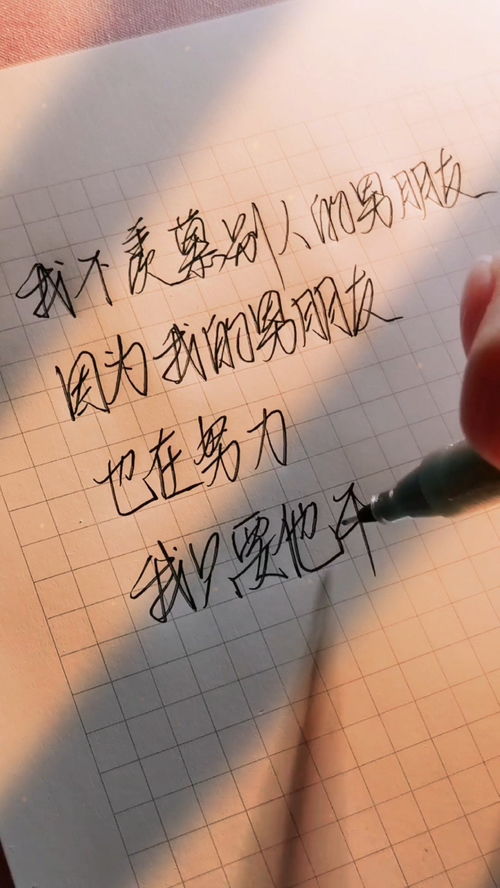 我不羡慕别人的男朋友
因为我的男朋友
也在努力
我只要他不